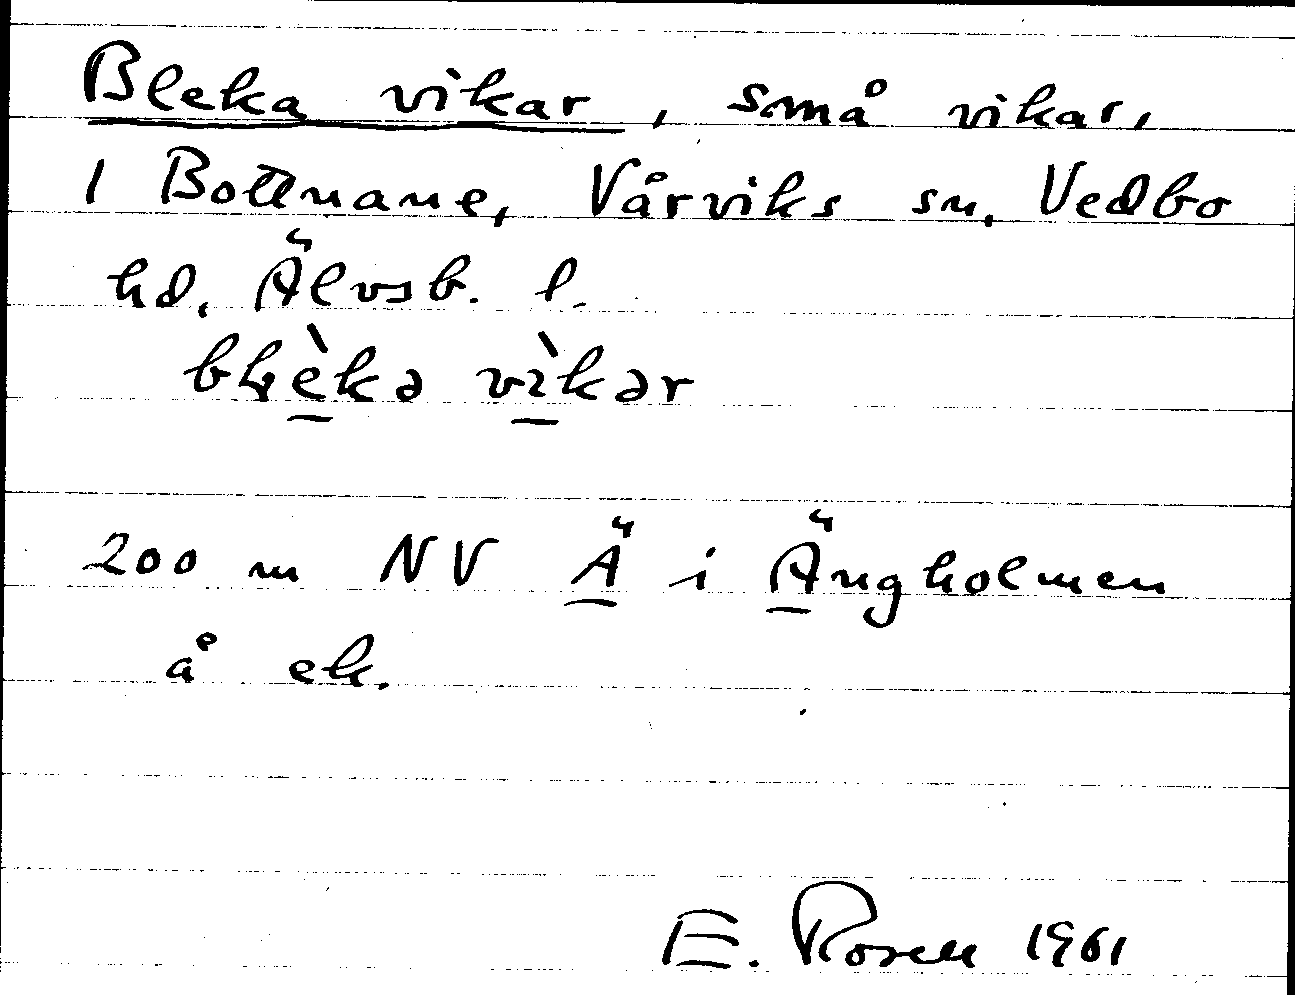 Bleka vikar, små vikar,
i Bottnane, Vårviks sn, Vedbo
hd, Älvsb. l.
200 m NV Ä i Ängholmen
å ek.
E. Rosell 1961